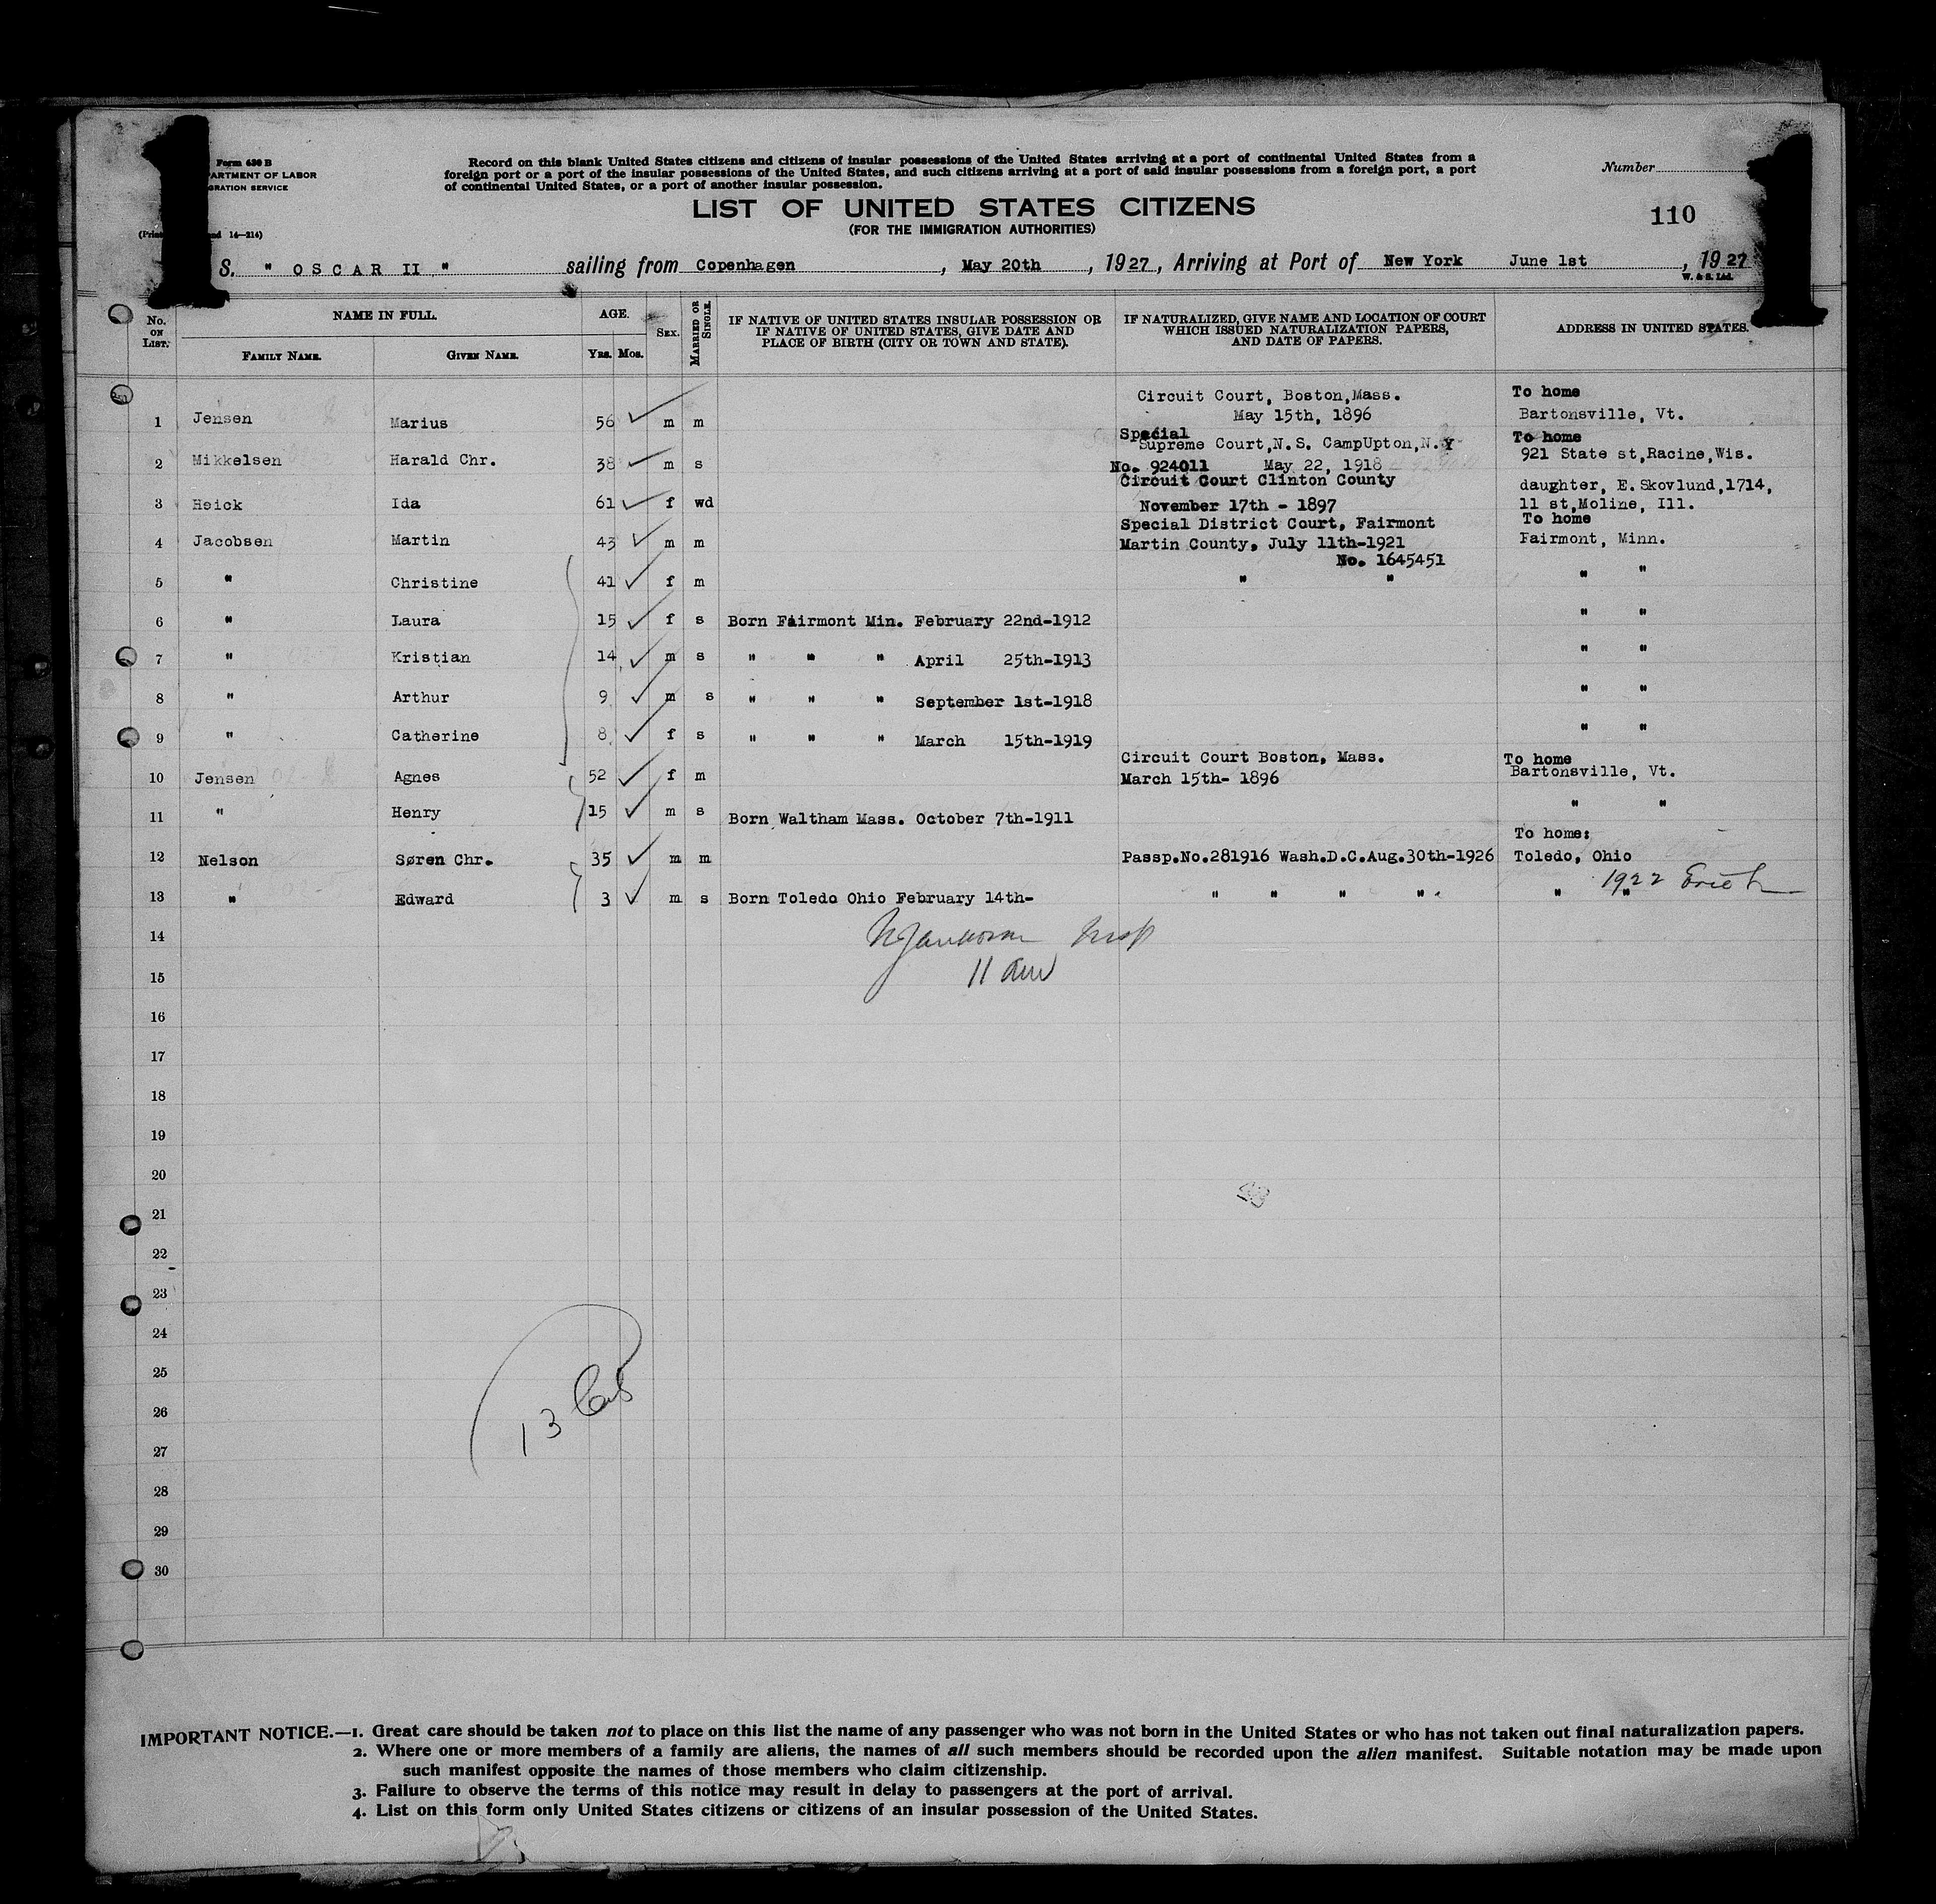 1 1
Form 630 B
ARTMENT OF LABOR
GRATION SERVICE
Record on this blank United States citizens and citizens of insular possessions of the United States arriving at a port of continental United States from a
foreign port or a port of the insular possessions of the United States, and such citizens arriving at a port of said insular possessions from a foreign port, a port
of continental United States, or a port of another insular possession.
Number
LIST OF UNITED STATES CITIZENS
(FOR THE IMMIGRATION AUTHORITIES)
110
14—214)
S. " OSCAR II " sailing from Copenhagen, May 20th, 1927, Arriving at Port of New York June 1st, 1927
W. & S. Ltd.
No. ON LIST. NAME IN FULL. FAMILY NAME. GIVEN NAME. AGE. YRS. MOS. SEX. MARRIED OR SINGLE. IF NATIVE OF UNITED STATES INSULAR POSSESSION OR IF NATIVE OF UNITED STATES, GIVE DATE AND PLACE OF BIRTH (CITY OR TOWN AND STATE). IF NATURALIZED, GIVE NAME AND LOCATION OF COURT WHICH ISSUED NATURALIZATION PAPERS, AND DATE OF PAPERS. ADDRESS IN UNITED STATES.
Circuit Court, Boston,Mass. To home
1 Jensen Marius 56 m m May 15th, 1896 Bartonsville, Vt.
Special To home
Supreme Court,N.S. CampUpton,N.Y
2 Mikkelsen Harald Chr. 38 m s No. 924011 May 22, 1918 921 State st,Racine,Wis.
Circuit Court Clinton County daughter, E.Skovlund,1714,
3 Heick Ida 61 f wd November 17th - 1897 11 st,Moline, Ill.
Special District Court, Fairmont To home
4 Jacobsen Martin 43 m m Martin County, July 11th-1921 Fairmont, Minn.
No. 1645451
5 " Christine 41 f m " " " "
6 " Laura 15 f s Born Fairmont Min. February 22nd-1912 " "
7 " Kristian 14 m s " " " April 25th-1913 " "
8 " Arthur 9 m s " " " September 1st-1918 " "
9 " Catherine 8 f s " " " March 15th-1919 " "
Circuit Court Boston, Mass. To home
10 Jensen Agnes 52 f m March 15th- 1896 Bartonsville, Vt.
11 " Henry 15 m s Born Waltham Mass. October 7th-1911 " "
To home:
12 Nelson Søren Chr. 35 m m Passp.No.281916 Wash.D.C.Aug.30th-1926 Toledo, Ohio
1922
13 " Edward 3 m s Born Toledo Ohio February 14th- " " " " " "
14
15 11
16
17
18
19
20
21
22
23
24
25
26
13
27
28
29
30
IMPORTANT NOTICE.—1. Great care should be taken not to place on this list the name of any passenger who was not born in the United States or who has not taken out final naturalization papers.
2. Where one or more members of a family are aliens, the names of all such members should be recorded upon the alien manifest. Suitable notation may be made upon
such manifest opposite the names of those members who claim citizenship.
3. Failure to observe the terms of this notice may result in delay to passengers at the port of arrival.
4. List on this form only United States citizens or citizens of an insular possession of the United States.